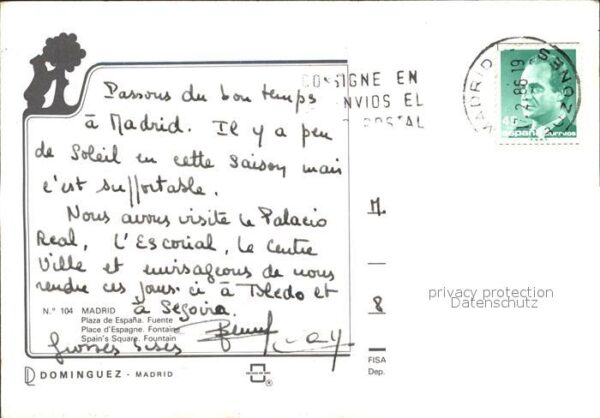 Passons du bon temps
à Madrid. Il y a peu
de Soleil en cette saison mais
c'est suffortable.
Nous avons visité le Palacio
Real, L'Escorial, le Centre
Ville et envisageons de nous
rendre ces jours ci à Toledo et
à Segovia.
Grosses bises
N.º 104 MADRID
Plaza de España. Fuente
Place d'Espagne. Fontaine
Spain's Square. Fountain
DOMINGUEZ - MADRID
FISA
Dep.
CONSIGNE EN
ENVIOS EL
POSTAL
MADRID
2 86 19
España correos
M.
8
privacy protection
Datenschutz